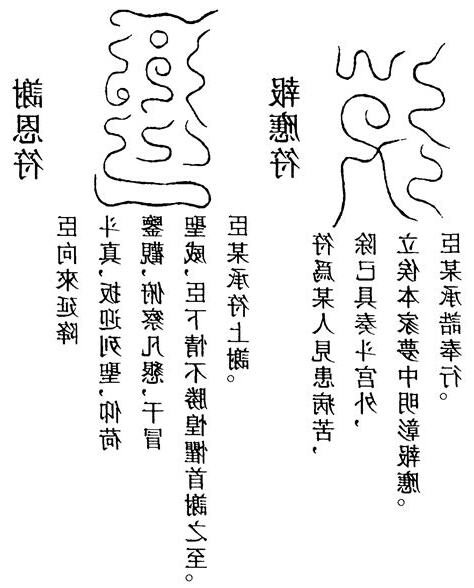 謝恩符
臣向來延降
斗真,扳迎列聖,仰荷
鑒觀,俯察凡懇,干冒
聖威,臣下情不勝惶懼首謝之至。
臣某承符上謝。
報應符
符爲某人見患病苦,
除已具奏斗宮外,
立俟本家夢中明彰報應。
臣某承誥奉行。